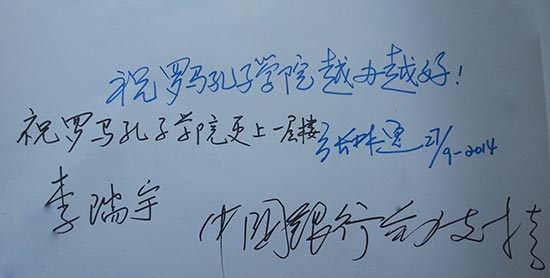 祝罗马孔子学院越办越好！
祝罗马孔子学院更上一层楼
张林 27/9-2014
李瑞宇
中国银行 支持